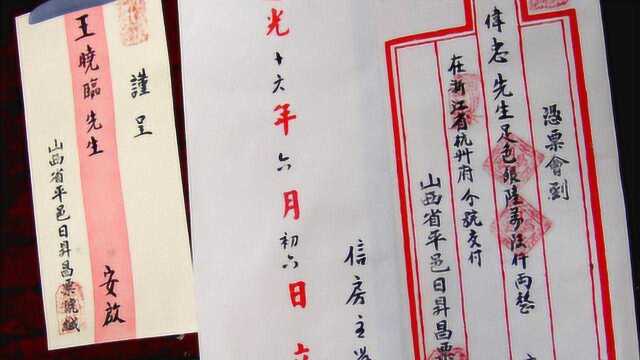 憑票會到
偉忠先生足色銀陸萬伍仟兩整
在浙江省杭州府分號交付
山西省平邑日昇昌票
信房主
光十六年六月初六日立
謹呈
王曉臨先生 安啟
山西省平邑日昇昌票號緘